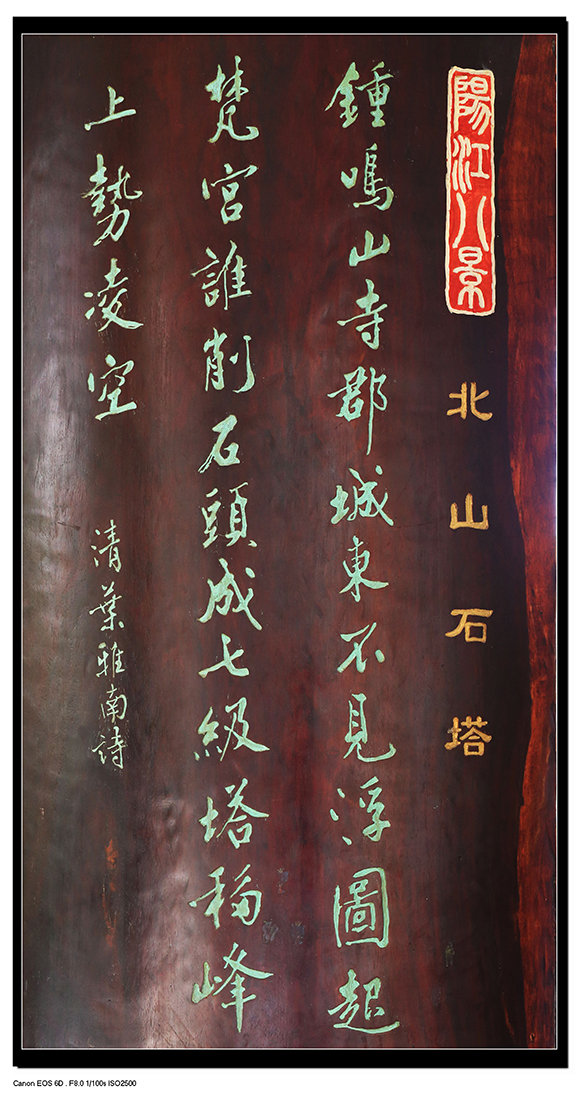 陽江八景
北山石塔
鍾鳴山寺郡城東不見浮圖起
梵宮誰削石頭成七級塔峰
上勢凌空
清葉雅南詩
Canon EOS 6D . F8.0 1/100s ISO2500